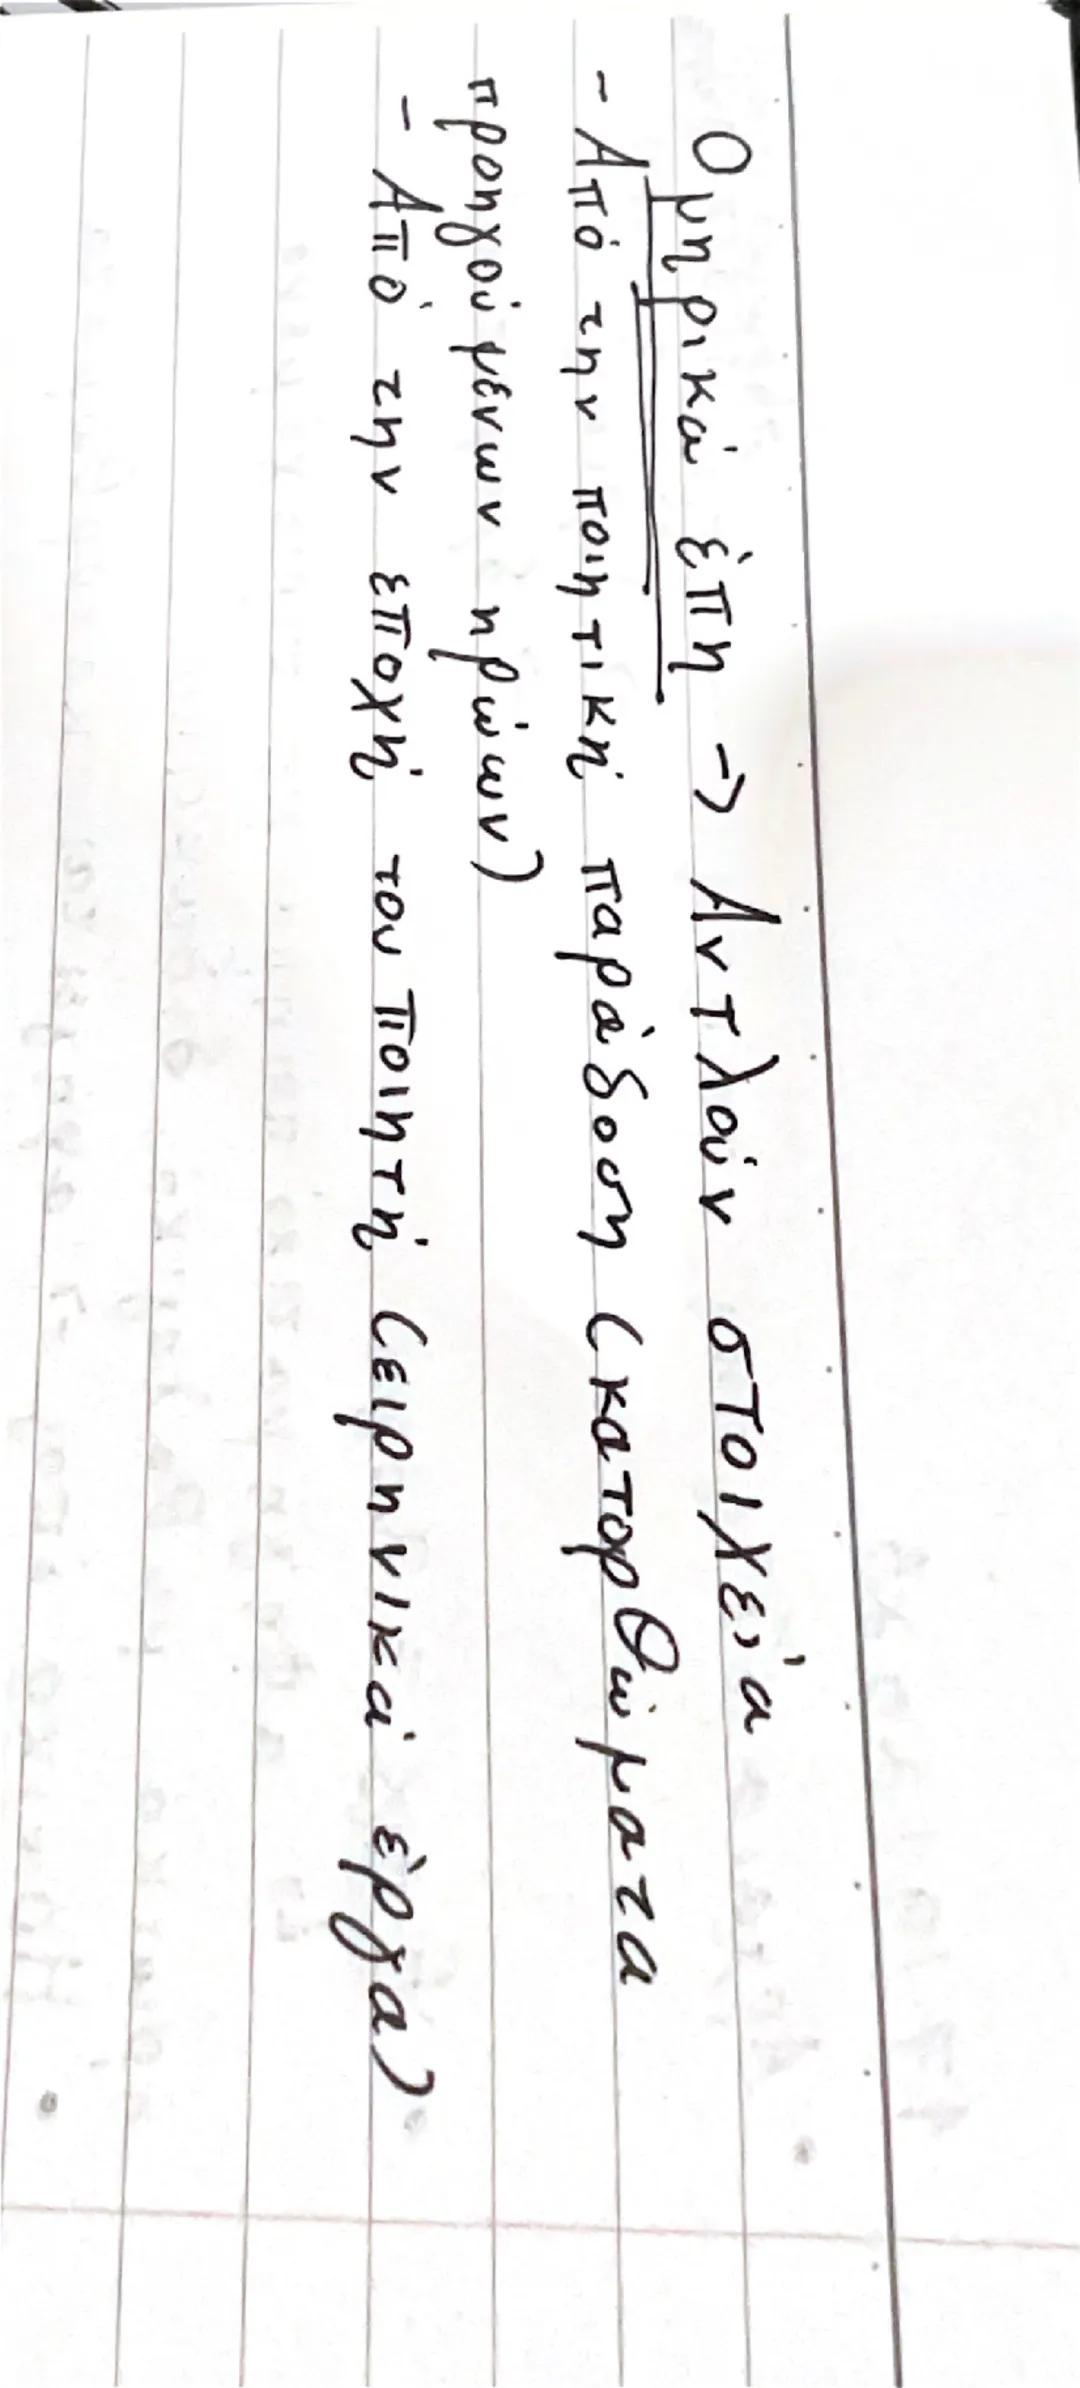 Ομηρικά έπη -> Αντλούν στοιχεία
- Από την ποιητική παράδοση (κατορθώματα
προηγούμενων ηρώων)
- Από την εποχή του ποιητή (ειρηνικά έργα)